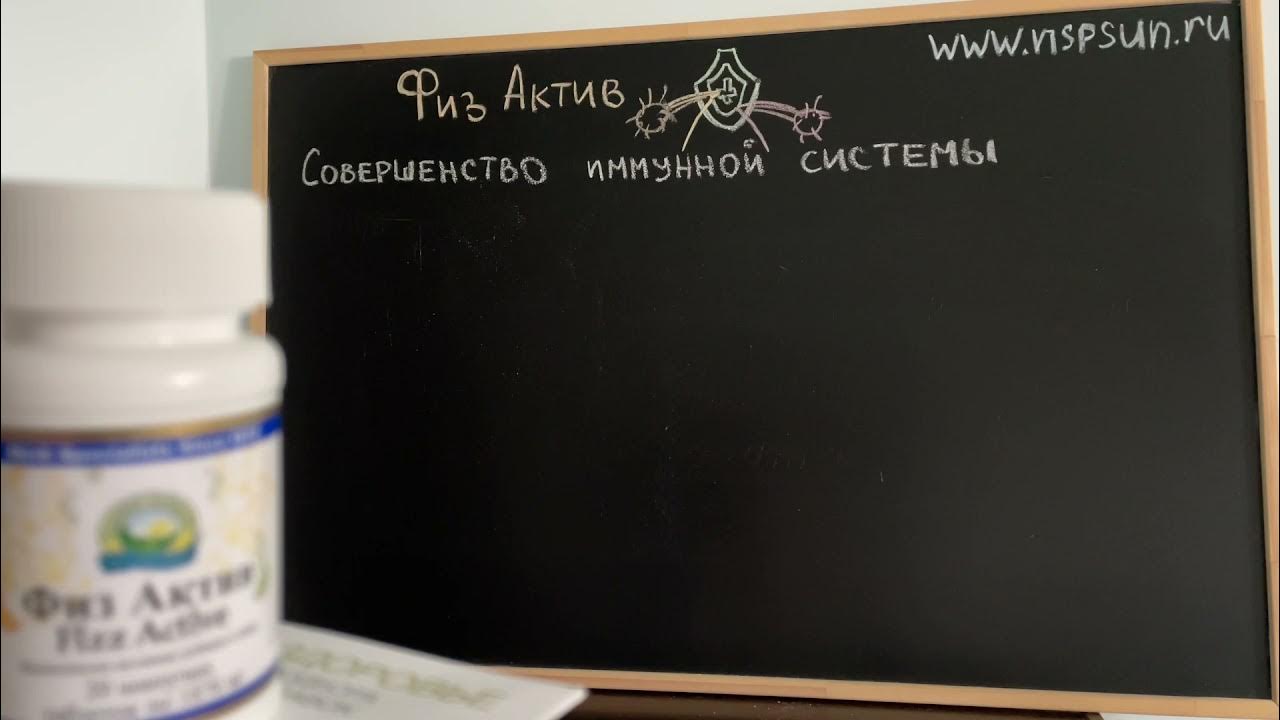 www.nspsun.ru
Физ Актив
Совершенство иммунной системы
Физ Актив
Fizz Active
ЗДОРОВЬЕ